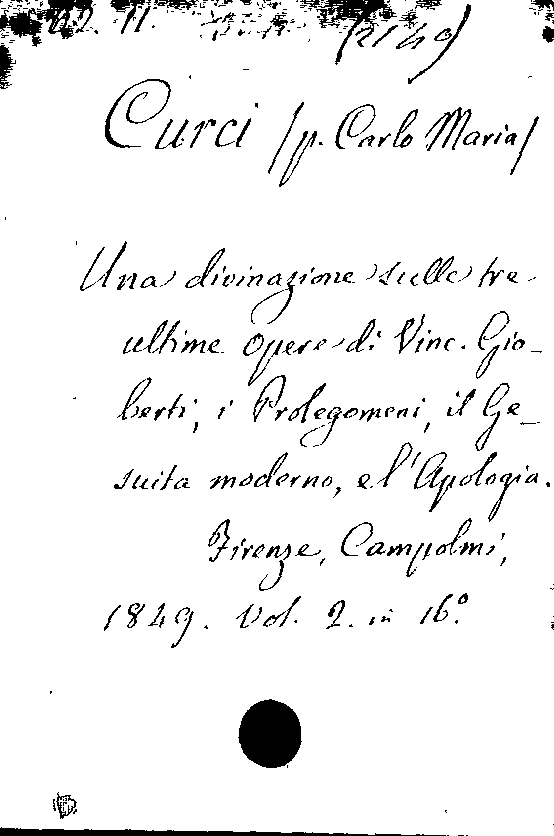 (2149)
Curci /p. Carlo Maria/
Una divinazione sulle tre
ultime opere di Vinc. Gio_
berti, i Prolegomeni, il Ge_
suita moderno, e l'Apologia.
Firenze, Campolmi,
1849. Vol. 2. in 16.°